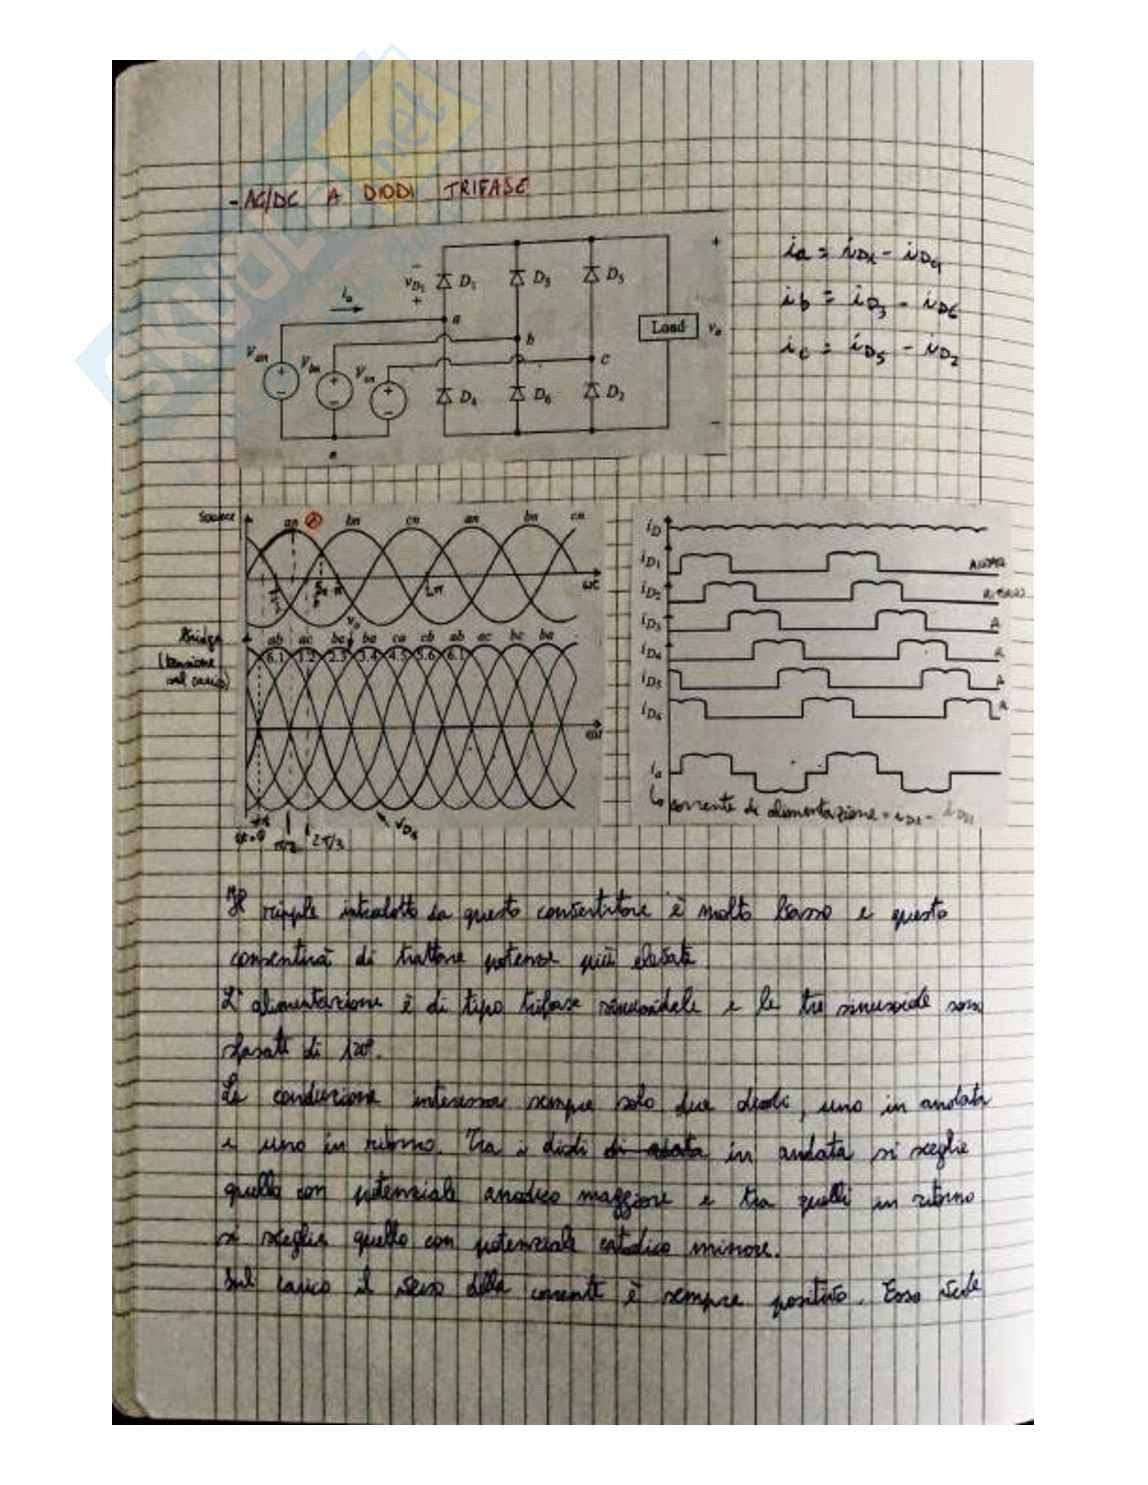 - AC/DC A DIODI TRIFASE
ia = iD1 - iD4
ib = iD3 - iD6
ic = iD5 - iD2
vD1 - +
D1 D3 D5
ia
a
b
c
Load vo
+
-
Van Vbn Vcn
D4 D6 D2
n
Source
an bn cn an bn cn
2π
ωt
Bridge
(tensione
sul carico)
vo
ab ac bc ba ca cb ab ac bc ba
6.1 1.2 2.3 3.4 4.5 5.6 6.1
ωt
π/2 2π/3
vD1
iD
iD1 ANDATA
iD2
iD3 A
iD4 R
iD5 A
iD6 R
ia
corrente di alimentazione = iD1 -
Il ripple introdotto da questo convertitore è molto basso e questo
consentirà di trattare potenze più elevate
L'alimentazione è di tipo trifase sinusoidale e le tre sinusoidi sono
sfasate di 120°.
La conduzione interessa sempre solo due diodi, uno in andata
e uno in ritorno. Tra i diodi in andata si sceglie
quello con potenziale anodico maggiore e tra quelli in ritorno
si sceglie quello con potenziale catodico minore.
Sul carico il senso della corrente è sempre positivo. Esso vede
SKUOLA.net